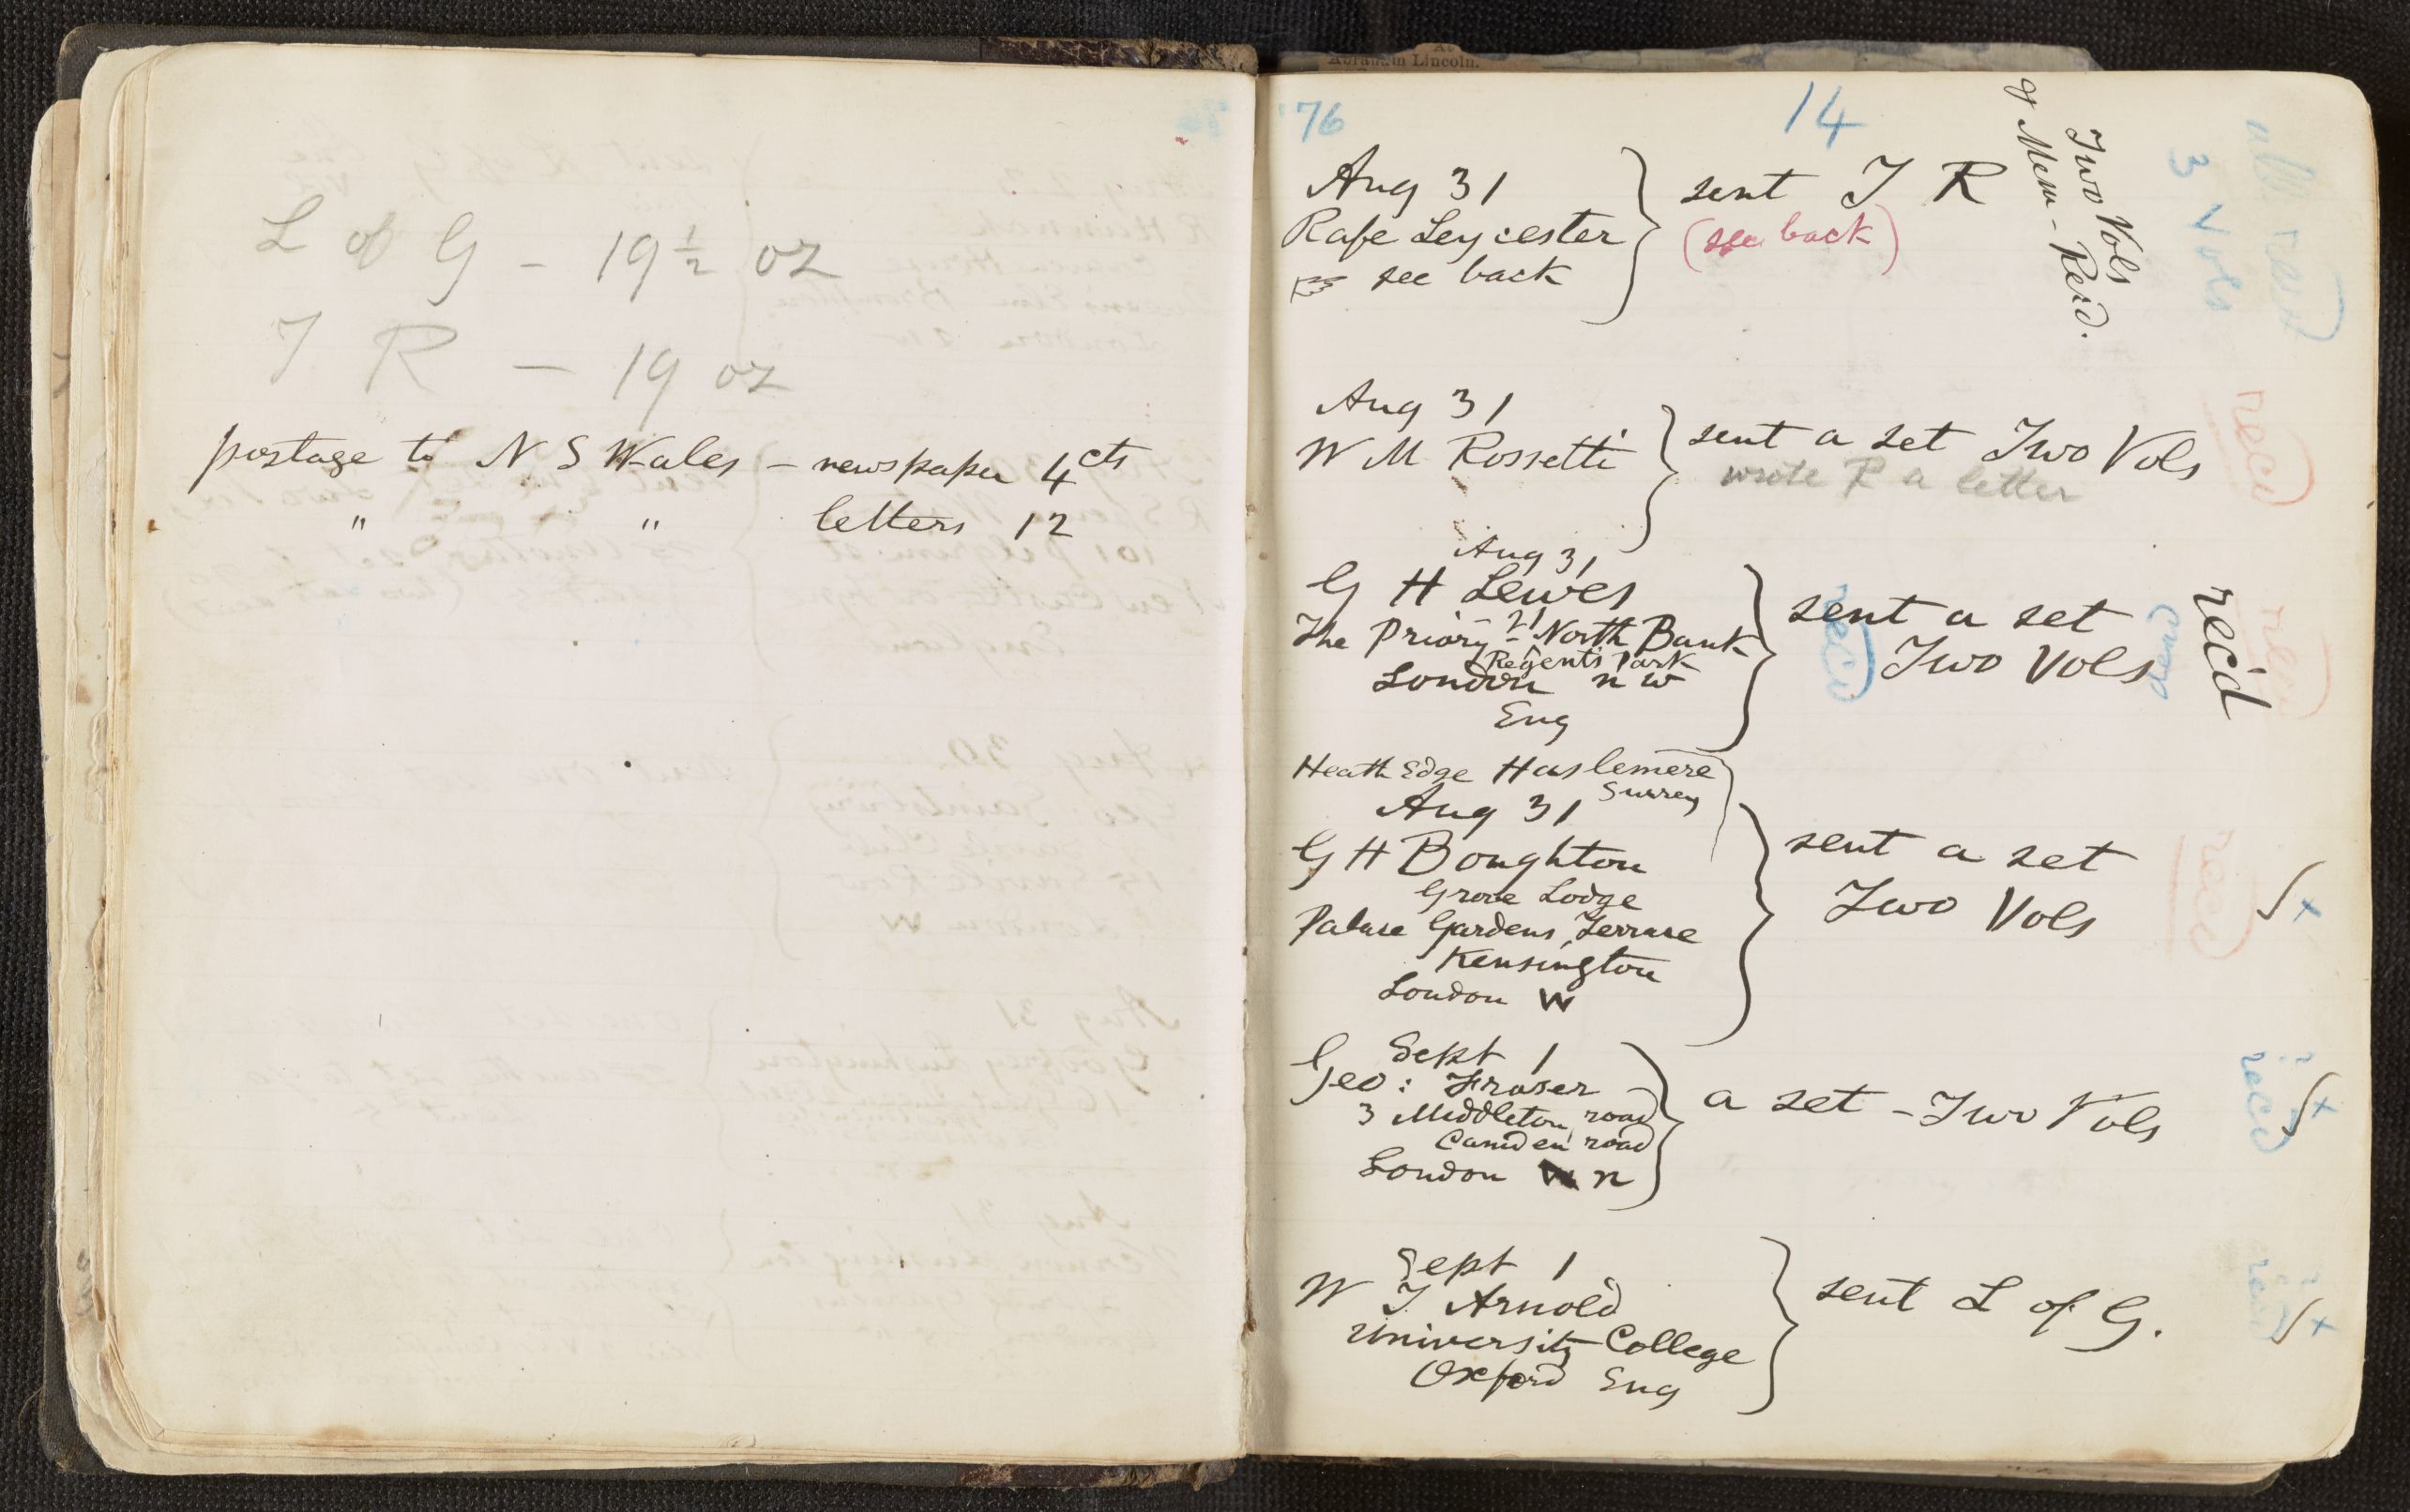 L of G - 19 ½ oz
T R - 19 oz
postage to N S Wales - newspaper 4 cts
" " letters 12
Abraham Lincoln.
'76
14
Aug 31
Rafe Leycester
☞ see back
sent T R
(see back)
Two Vols
& Mem-
3 Vols
rec'd
Aug 31
W M Rossetti
sent a set Two Vols
wrote R a letter
rec'd
Aug 31
G H Lewes
The Priory - 21 - North Bank
Regent's Park
London n w
Eng
sent a set
Two Vols
rec'd
rec'd
Heath Edge Haslemere
Surrey
Aug 31
G H Boughton
Grove Lodge
Palace Gardens Terrace
Kensington
London W
sent a set
Two Vols
rec'd
Sept 1
Geo: Fraser
3 Middleton road
Camden road
London n
a set - Two Vols
rec'd
Sept 1
W T Arnold
University College
Oxford Eng
sent L of G.
rec'd